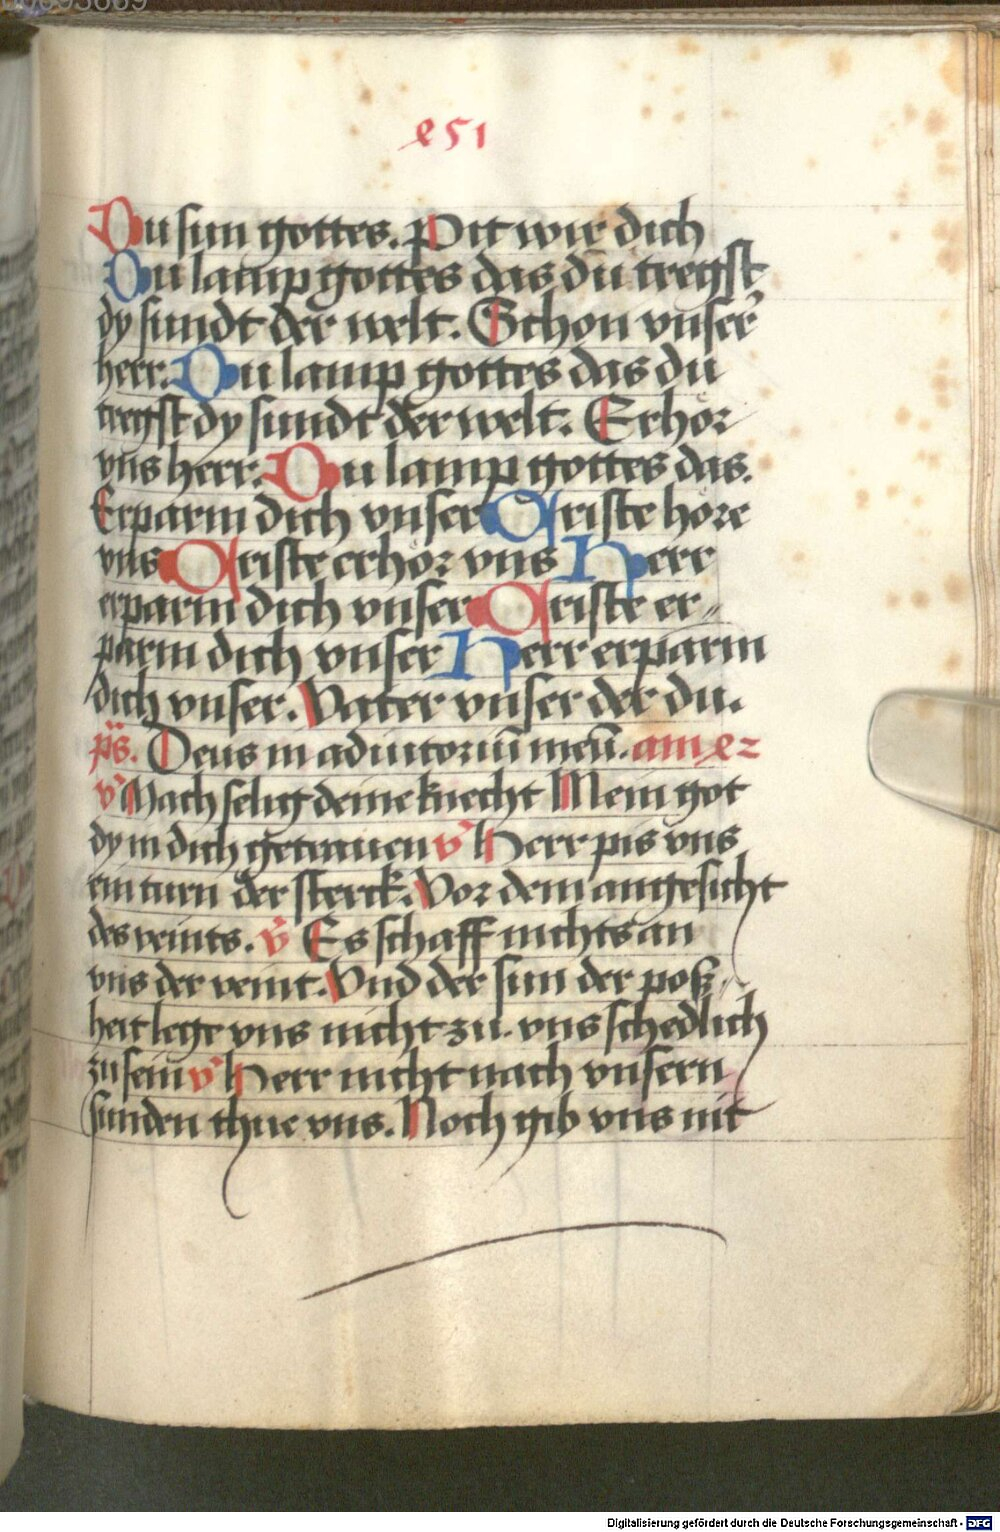 251
Du sun gottes. Pit wir dich
Du lamp gottes das du tregst
dy sundt der welt. Schon vnser
herr. Du lamp gottes das du
tregst dy sundt der welt. Erhör
vns herr. Du lamp gottes das.
Erparm dich vnser Criste höre
vns Criste erhör vns Herr
erparm dich vnser Criste er⸗
parm dich vnser Herr erparm
dich vnser. Vater vnser der du.
ps. Deus in adiutoriū meū. am
v Mach selig deine knecht Mein got
dy in dich getrauen v Herr pis vns
ein turn der sterck. Vor dem angesicht
des veints. v Es schaff nichts an
vns der veint. Vnd der sun der posz⸗
heit lege vns nicht zu. vns schedlich
zu sein v Herr nicht nach vnsern
sunden thue vns. Noch gib vns nit
Digitalisierung gefördert durch die Deutsche Forschungsgemeinschaft - DFG